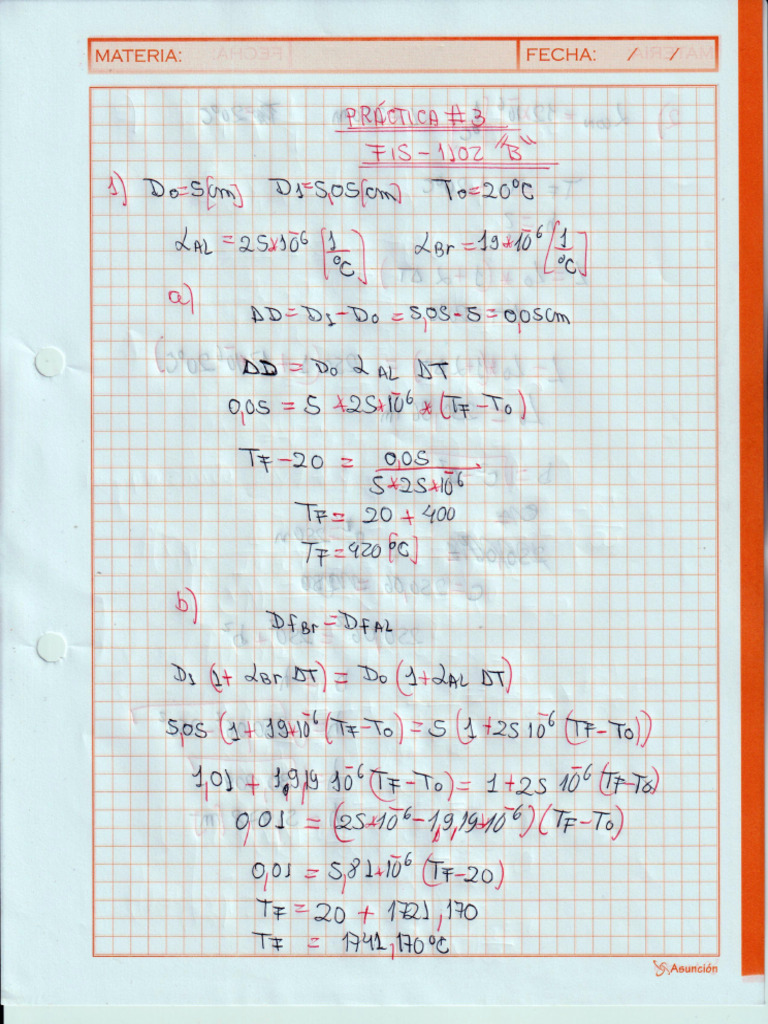 MATERIA: FECHA: / /
PRÁCTICA # 3
FIS - 1102 "B"
1) D₀=5[cm] D1=5,05[cm] T₀=20°C
α_AL = 25*10⁻⁶ [1/°C] α_Br = 19*10⁻⁶ [1/°C]
a)
ΔD = D1 - D₀ = 5,05 - 5 = 0,05cm
ΔD = D₀ α_AL ΔT
0,05 = 5 *25*10⁻⁶ *(TF - T₀)
TF - 20 = 0,05 / 5*25*10⁻⁶
TF = 20 + 400
TF = 420[°C]
b)
Df_Br = Df_AL
D1 (1+ α_Br ΔT) = D₀ (1+α_AL ΔT)
5,05 (1+ 19*10⁻⁶ (TF - T₀) = 5 (1 +25 10⁻⁶ (TF - T₀))
1,01 + 1,9,19 10⁻⁶ (TF - T₀) = 1 + 25 10⁻⁶ (TF - T₀)
0,01 = (25*10⁻⁶ - 1,9,19*10⁻⁶) (TF - T₀)
0,01 = 5,81*10⁻⁶ (TF - 20)
TF = 20 + 1721,170
TF = 1741,170°C
Asunción